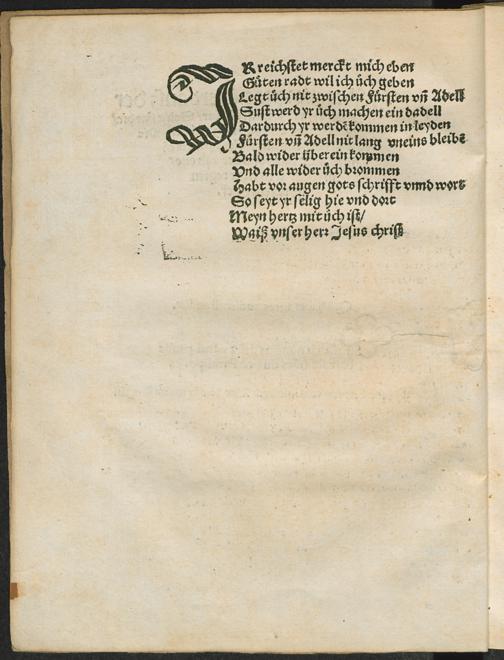 IR reichstet merckt mich eben
Gůten radt wil ich üch geben
Legt üch nit zwischen Fürsten vñ Adell
Sust werd yr üch machen ein dadell
Dardurch yr werdẽ kommen in leyden
Fürsten vñ Adell nit lang vneins bleibẽ
Bald wider überein kommen
Vnd alle wider üch brommen
Habt vor augen gots schrifft vnnd wort
So seyt yr selig hie vnd dort
Meyn hertz mit üch ist/
Waiß vnser herr Jesus christ